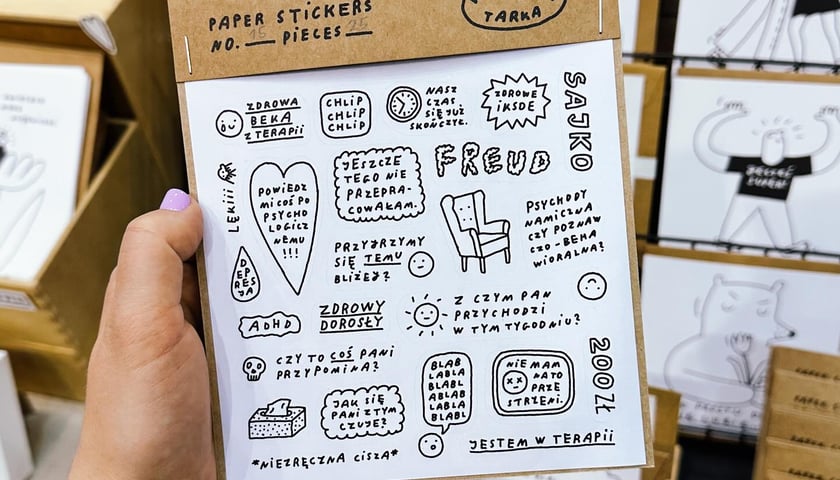 PAPER STICKERS
NO. 15 PIECES 25
TARKA
ZDROWA
BEKA
Z TERAPII
CHLIP
CHLIP
CHLIP
NASZ
CZAS
SIĘ JUŻ
SKOŃCZYŁ.
ZDROWE
IKSDE
SAJKO
LĘKIII
POWIEDZ
MI COŚ PO
PSYCHO
LOGICZ
NEMU
!!!
JESZCZE
TEGO NIE
PRZEPRA-
COWAŁAM.
FREUD
PSYCHODY
NAMICZNA
CZY POZNAW
CZO-BEHA
WIORALNA?
PRZYJRZYJMY
SIĘ TEMU
BLIŻEJ?
DEP
RES
JA
ADHD
ZDROWY
DOROSŁY
Z CZYM PAN
PRZYCHODZI
W TYM TYGODNIU?
CZY TO COŚ PANI
PRZYPOMINA?
BLAB
LABLA
BLABL
ABLAB
LABLA
BLABL
NIE MAM
NA TO
PRZE
STRZENI.
200ZŁ
JAK SIĘ
PANI Z TYM
CZUJE?
*NIEZRĘCZNA CISZA*
JESTEM W TERAPII